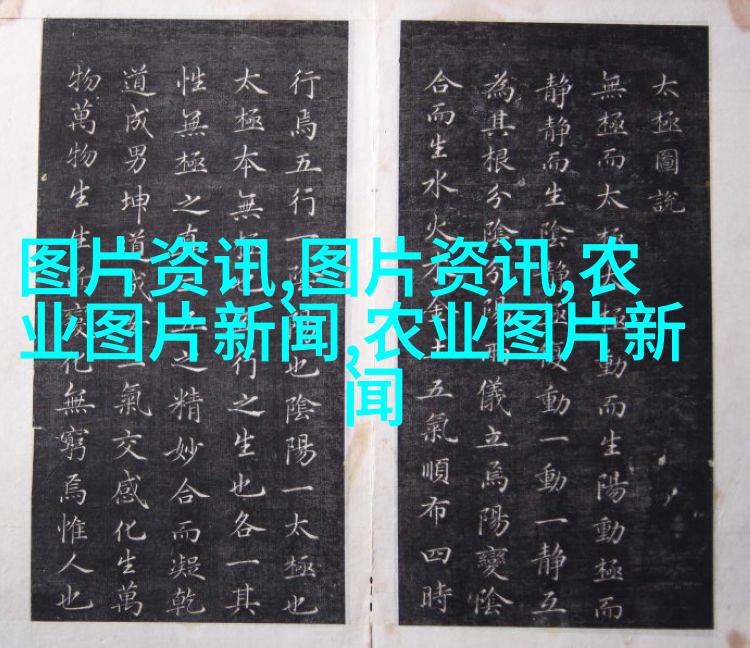 太極圖說
無極而太極太極動而生陽動極而
静静而生陰静極復動一動一静互
為其根分陰分陽兩儀立焉陽變陰
合而生水火木金土五氣順布四時
行焉五行一陰陽也陰陽一太極也
太極本無極也五行之生也各一其
性無極之真二五之精妙合而凝乾
道成男坤道成女二氣交感化生萬
物萬物生生而變化無窮焉惟人也
图片资讯,图片资讯,农
业图片新闻,农业图片新
闻